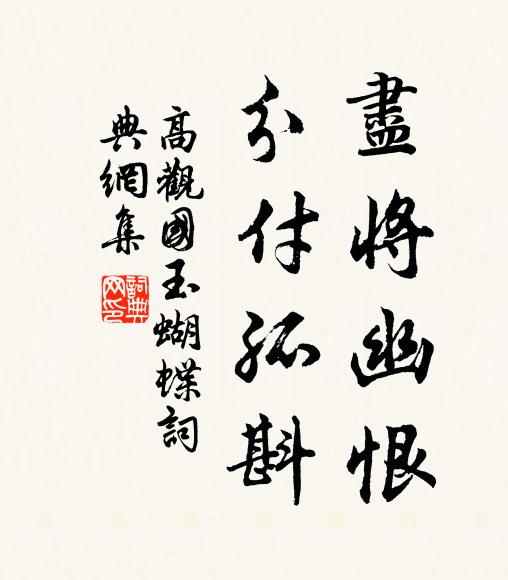 盡將幽恨
分付孤斟
高觀國玉蝴蝶詞
典網集
詞典
网印